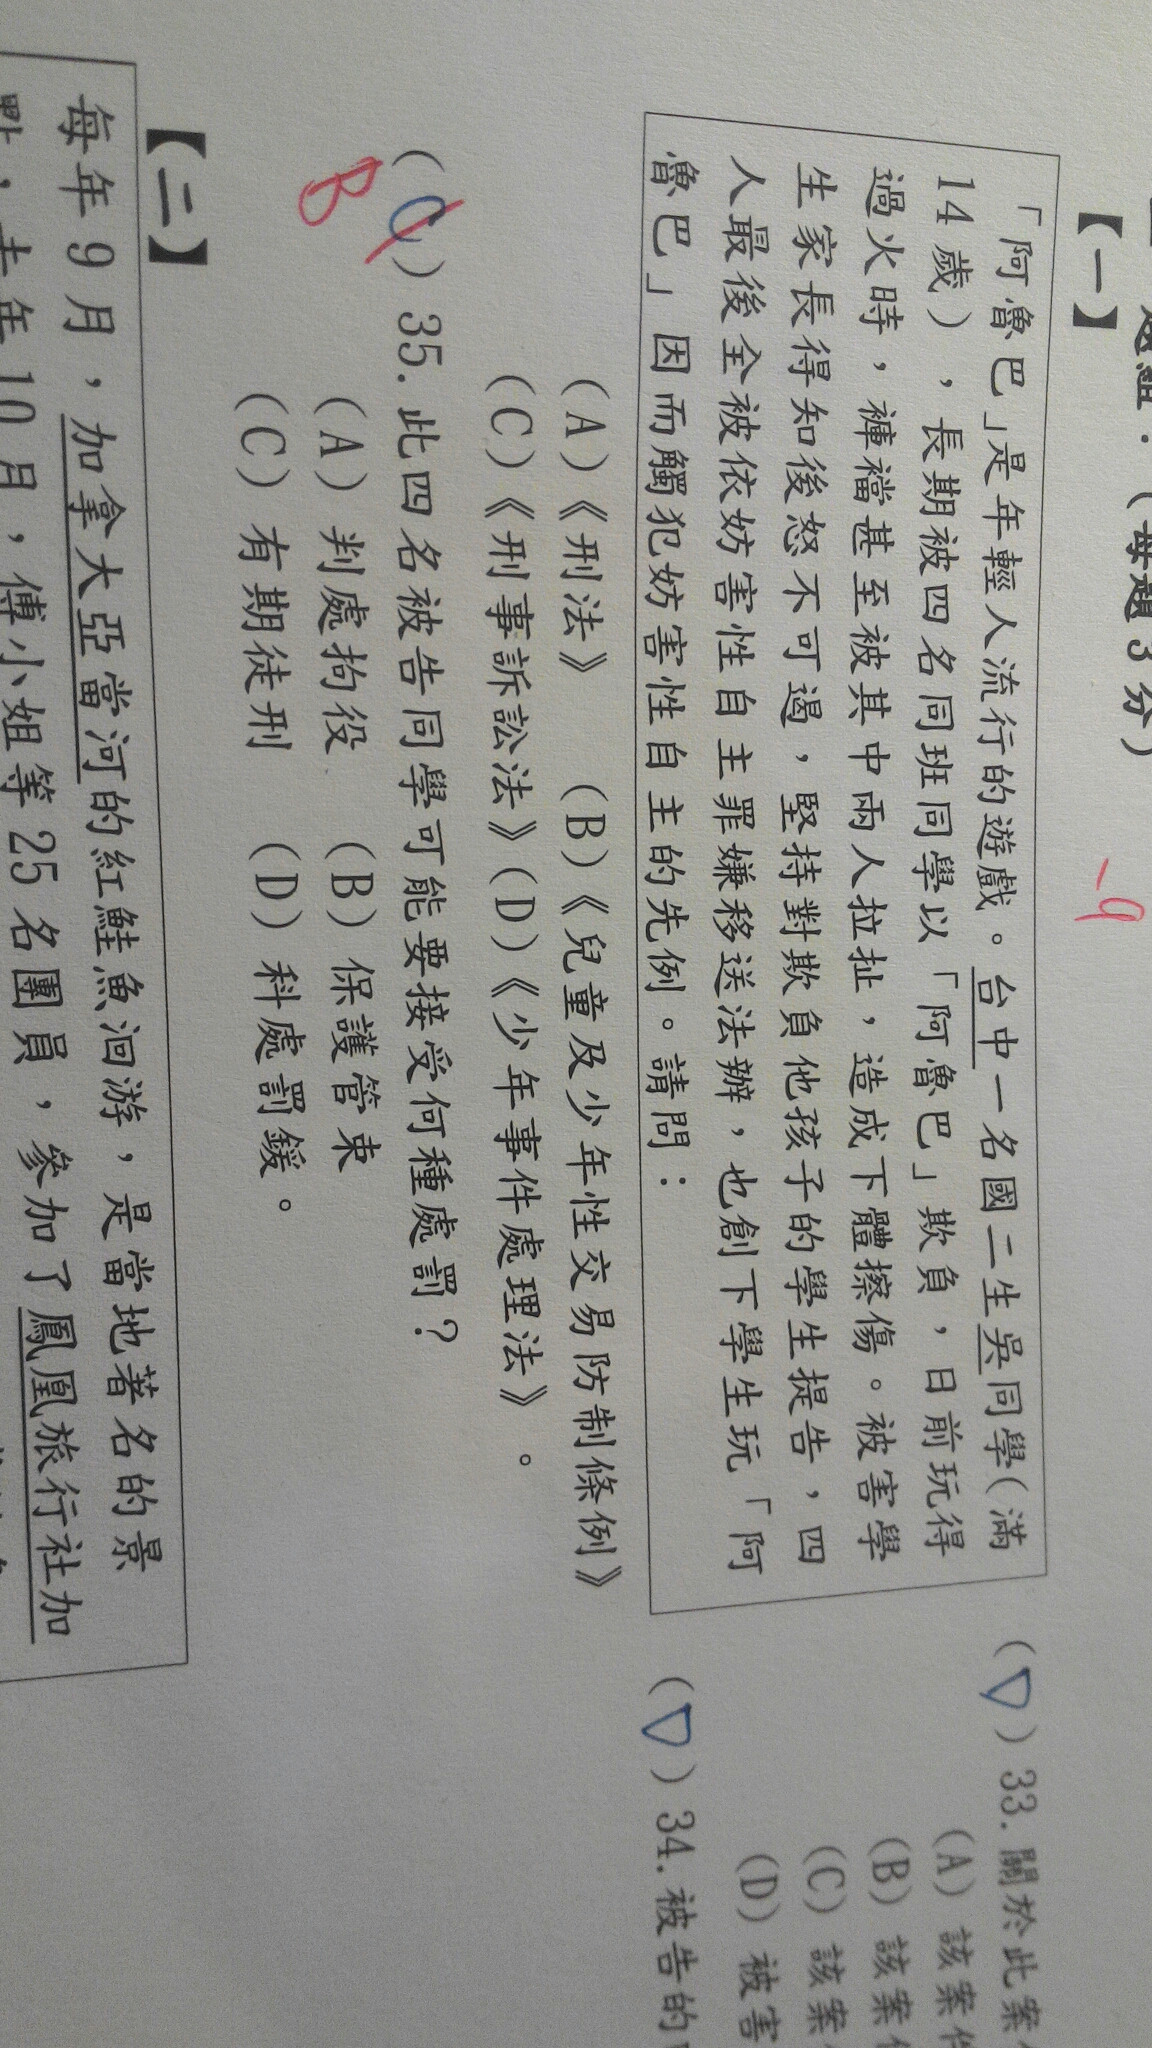 題組：（每題3分）
-9
【一】
「阿魯巴」是年輕人流行的遊戲。台中一名國二生吳同學(滿
14歲），長期被四名同班同學以「阿魯巴」欺負，日前玩得
過火時，褲襠甚至被其中兩人拉扯，造成下體擦傷。被害學
生家長得知後怒不可遏，堅持對欺負他孩子的學生提告，四
人最後全被依妨害性自主罪嫌移送法辦，也創下學生玩「阿
魯巴」因而觸犯妨害性自主的先例。請問：
(D)33.關於此案
(A) 該案件
(B) 該案
(C) 該案
(D) 被害
(D)34.被告的
(A)《刑法》 (B)《兒童及少年性交易防制條例》
(C)《刑事訴訟法》(D)《少年事件處理法》。
(C)35.此四名被告同學可能要接受何種處罰？
B
(A) 判處拘役 (B) 保護管束
(C) 有期徒刑 (D) 科處罰鍰。
【二】
每年9月，加拿大亞當河的紅鮭魚洄游，是當地著名的景
點，去年10月，傅小姐等25名團員，參加了鳳凰旅行社加